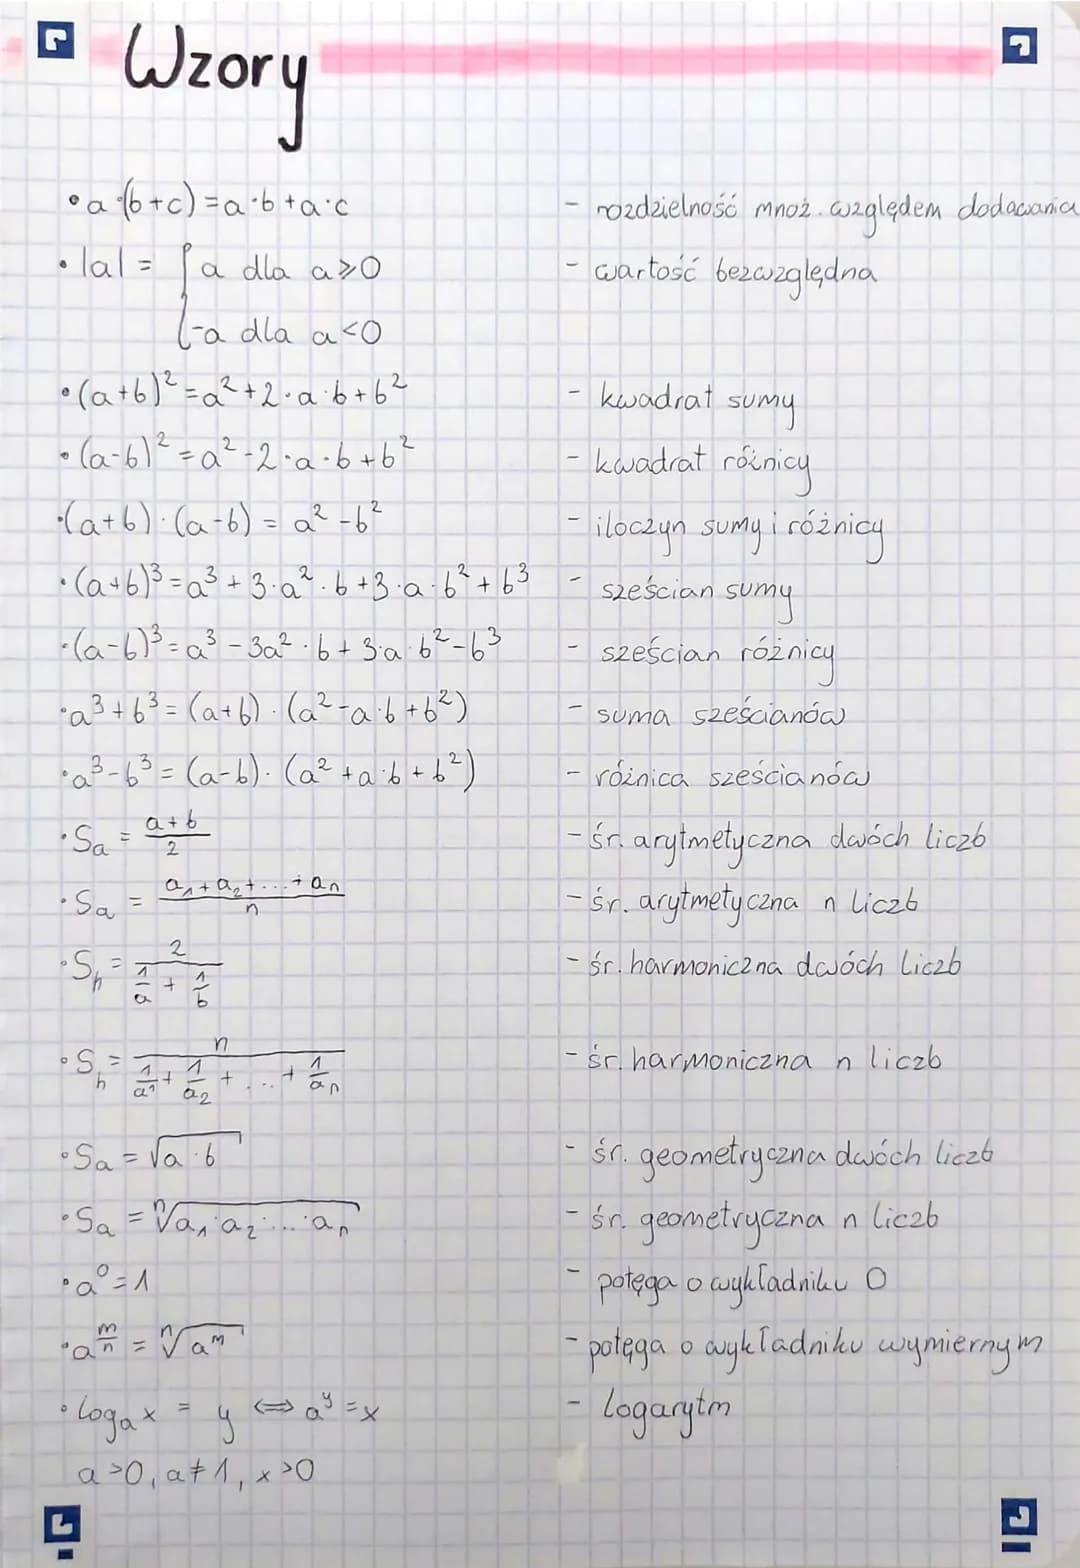 Wzory
• a·(b+c)=a·b+a·c - rozdzielność mnoż. względem dodawania
• |a| = { a dla a⩾0 - wartość bezwzględna
-a dla a<0
• (a+b)² = a²+2·a·b+b² - kwadrat sumy
• (a-b)² = a²-2·a·b+b² - kwadrat różnicy
• (a+b)·(a-b) = a²-b² - iloczyn sumy i różnicy
• (a+b)³ = a³+3·a²·b+3·a·b²+b³ - sześcian sumy
• (a-b)³ = a³-3a²·b+3·a·b²-b³ - sześcian różnicy
• a³+b³ = (a+b)·(a²-a·b+b²) - suma sześcianów
• a³-b³ = (a-b)·(a²+a·b+b²) - różnica sześcianów
• Sₐ = (a+b)/2 - śr. arytmetyczna dwóch liczb
• Sₐ = (a₁+a₂+...+aₙ)/n - śr. arytmetyczna n liczb
• Sₕ = 2/(1/a + 1/b) - śr. harmoniczna dwóch liczb
• Sₕ = n/(1/a1 + 1/a₂ + ... + 1/aₙ) - śr. harmoniczna n liczb
• Sₐ = √(a·b) - śr. geometryczna dwóch liczb
• Sₐ = ⁿ√(a₁·a₂·...·aₙ) - śr. geometryczna n liczb
• a⁰=1 - potęga o wykładniku 0
• a^(m/n) = ⁿ√(aᵐ) - potęga o wykładniku wymiernym
• logₐx = y ⟺ aʸ=x - logarytm
a>0, a≠1, x>0